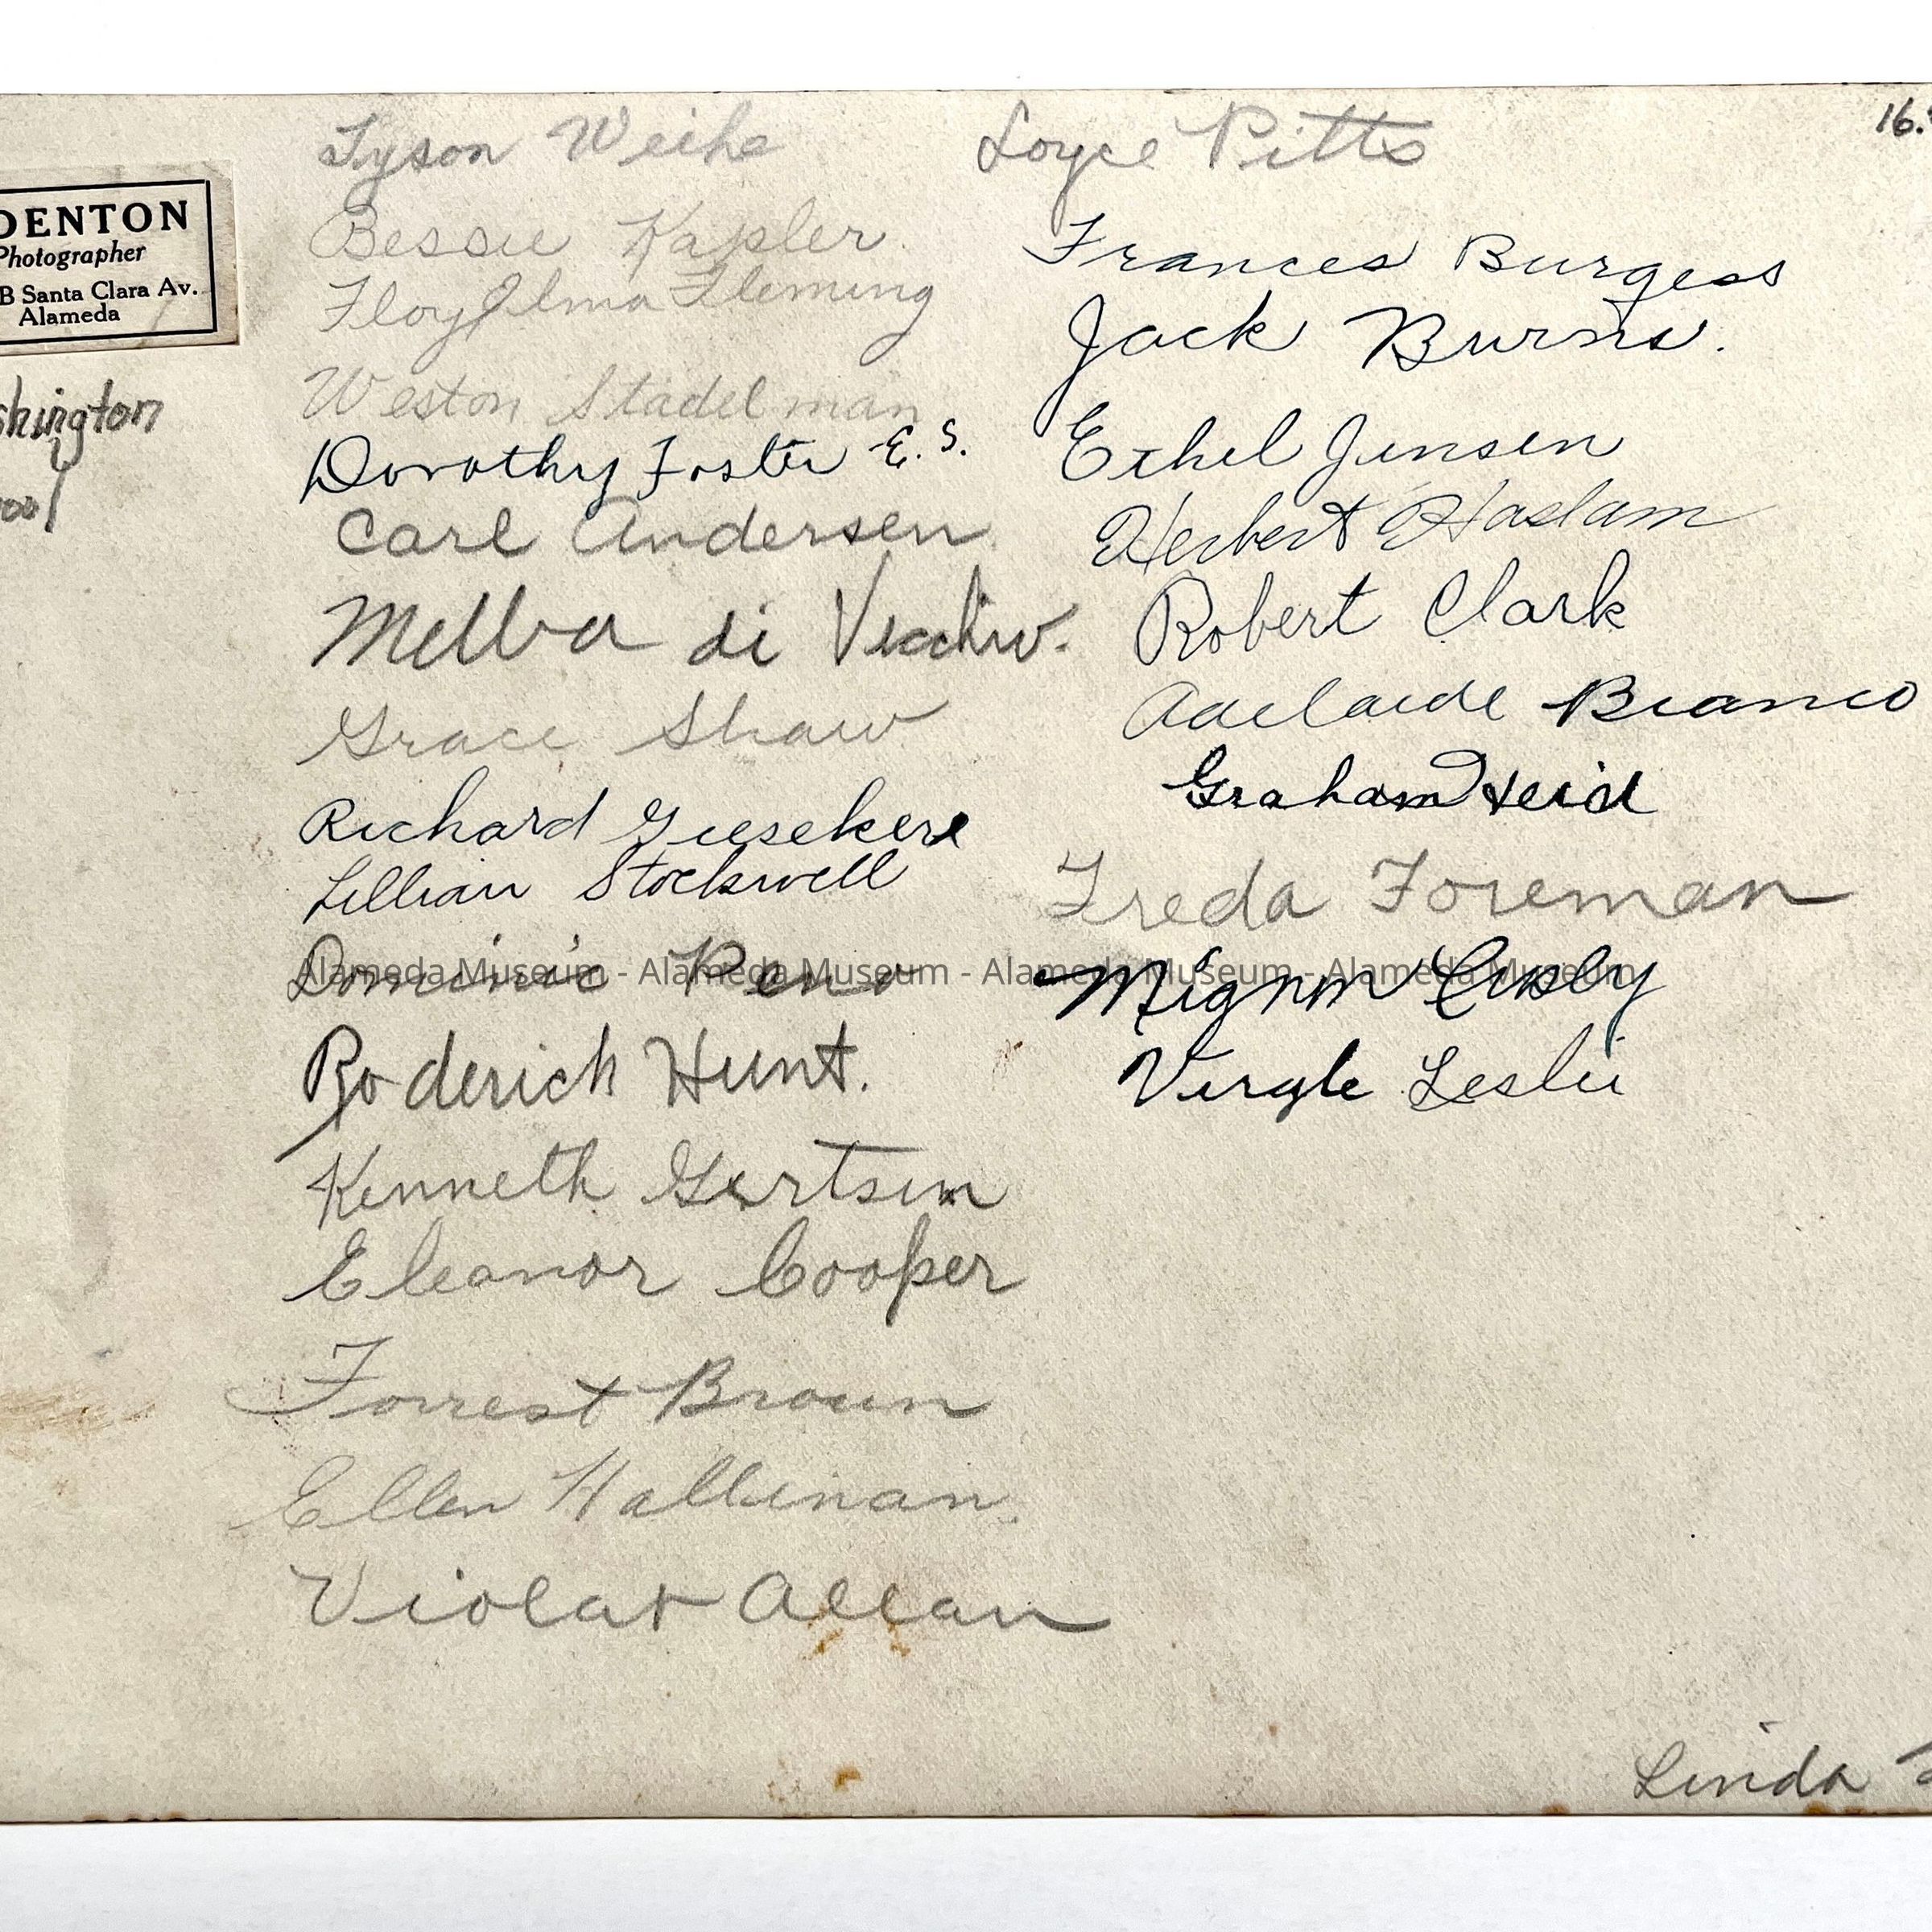 16.
Tyson Weihe
Loyce Pitts
DENTON
Photographer
B Santa Clara Av.
Alameda
shington
ool
Bessie Kapler
Floy Ilma Fleming
Weston Stadelman
Dorothy Foster E.S.
Carl Andersen
Melba di Vecchio.
Grace Shaw
Richard Giesekere
Lillian Stockwell
Dominic Peno
Roderich Hunt.
Kenneth Gertsen
Eleanor Cooper
Forrest Brown
Ellen Hallinan.
Violat Allan
Frances Burgess
Jack Burns.
Ethel Jensen
Herbert Haslam
Robert Clark
Adelaide Bianco
Graham Heid
Freda Foreman
Mignon
Virgle Leslie
Alameda Museum - Alameda Museum - Alameda Museum - Alameda Museum
Linda